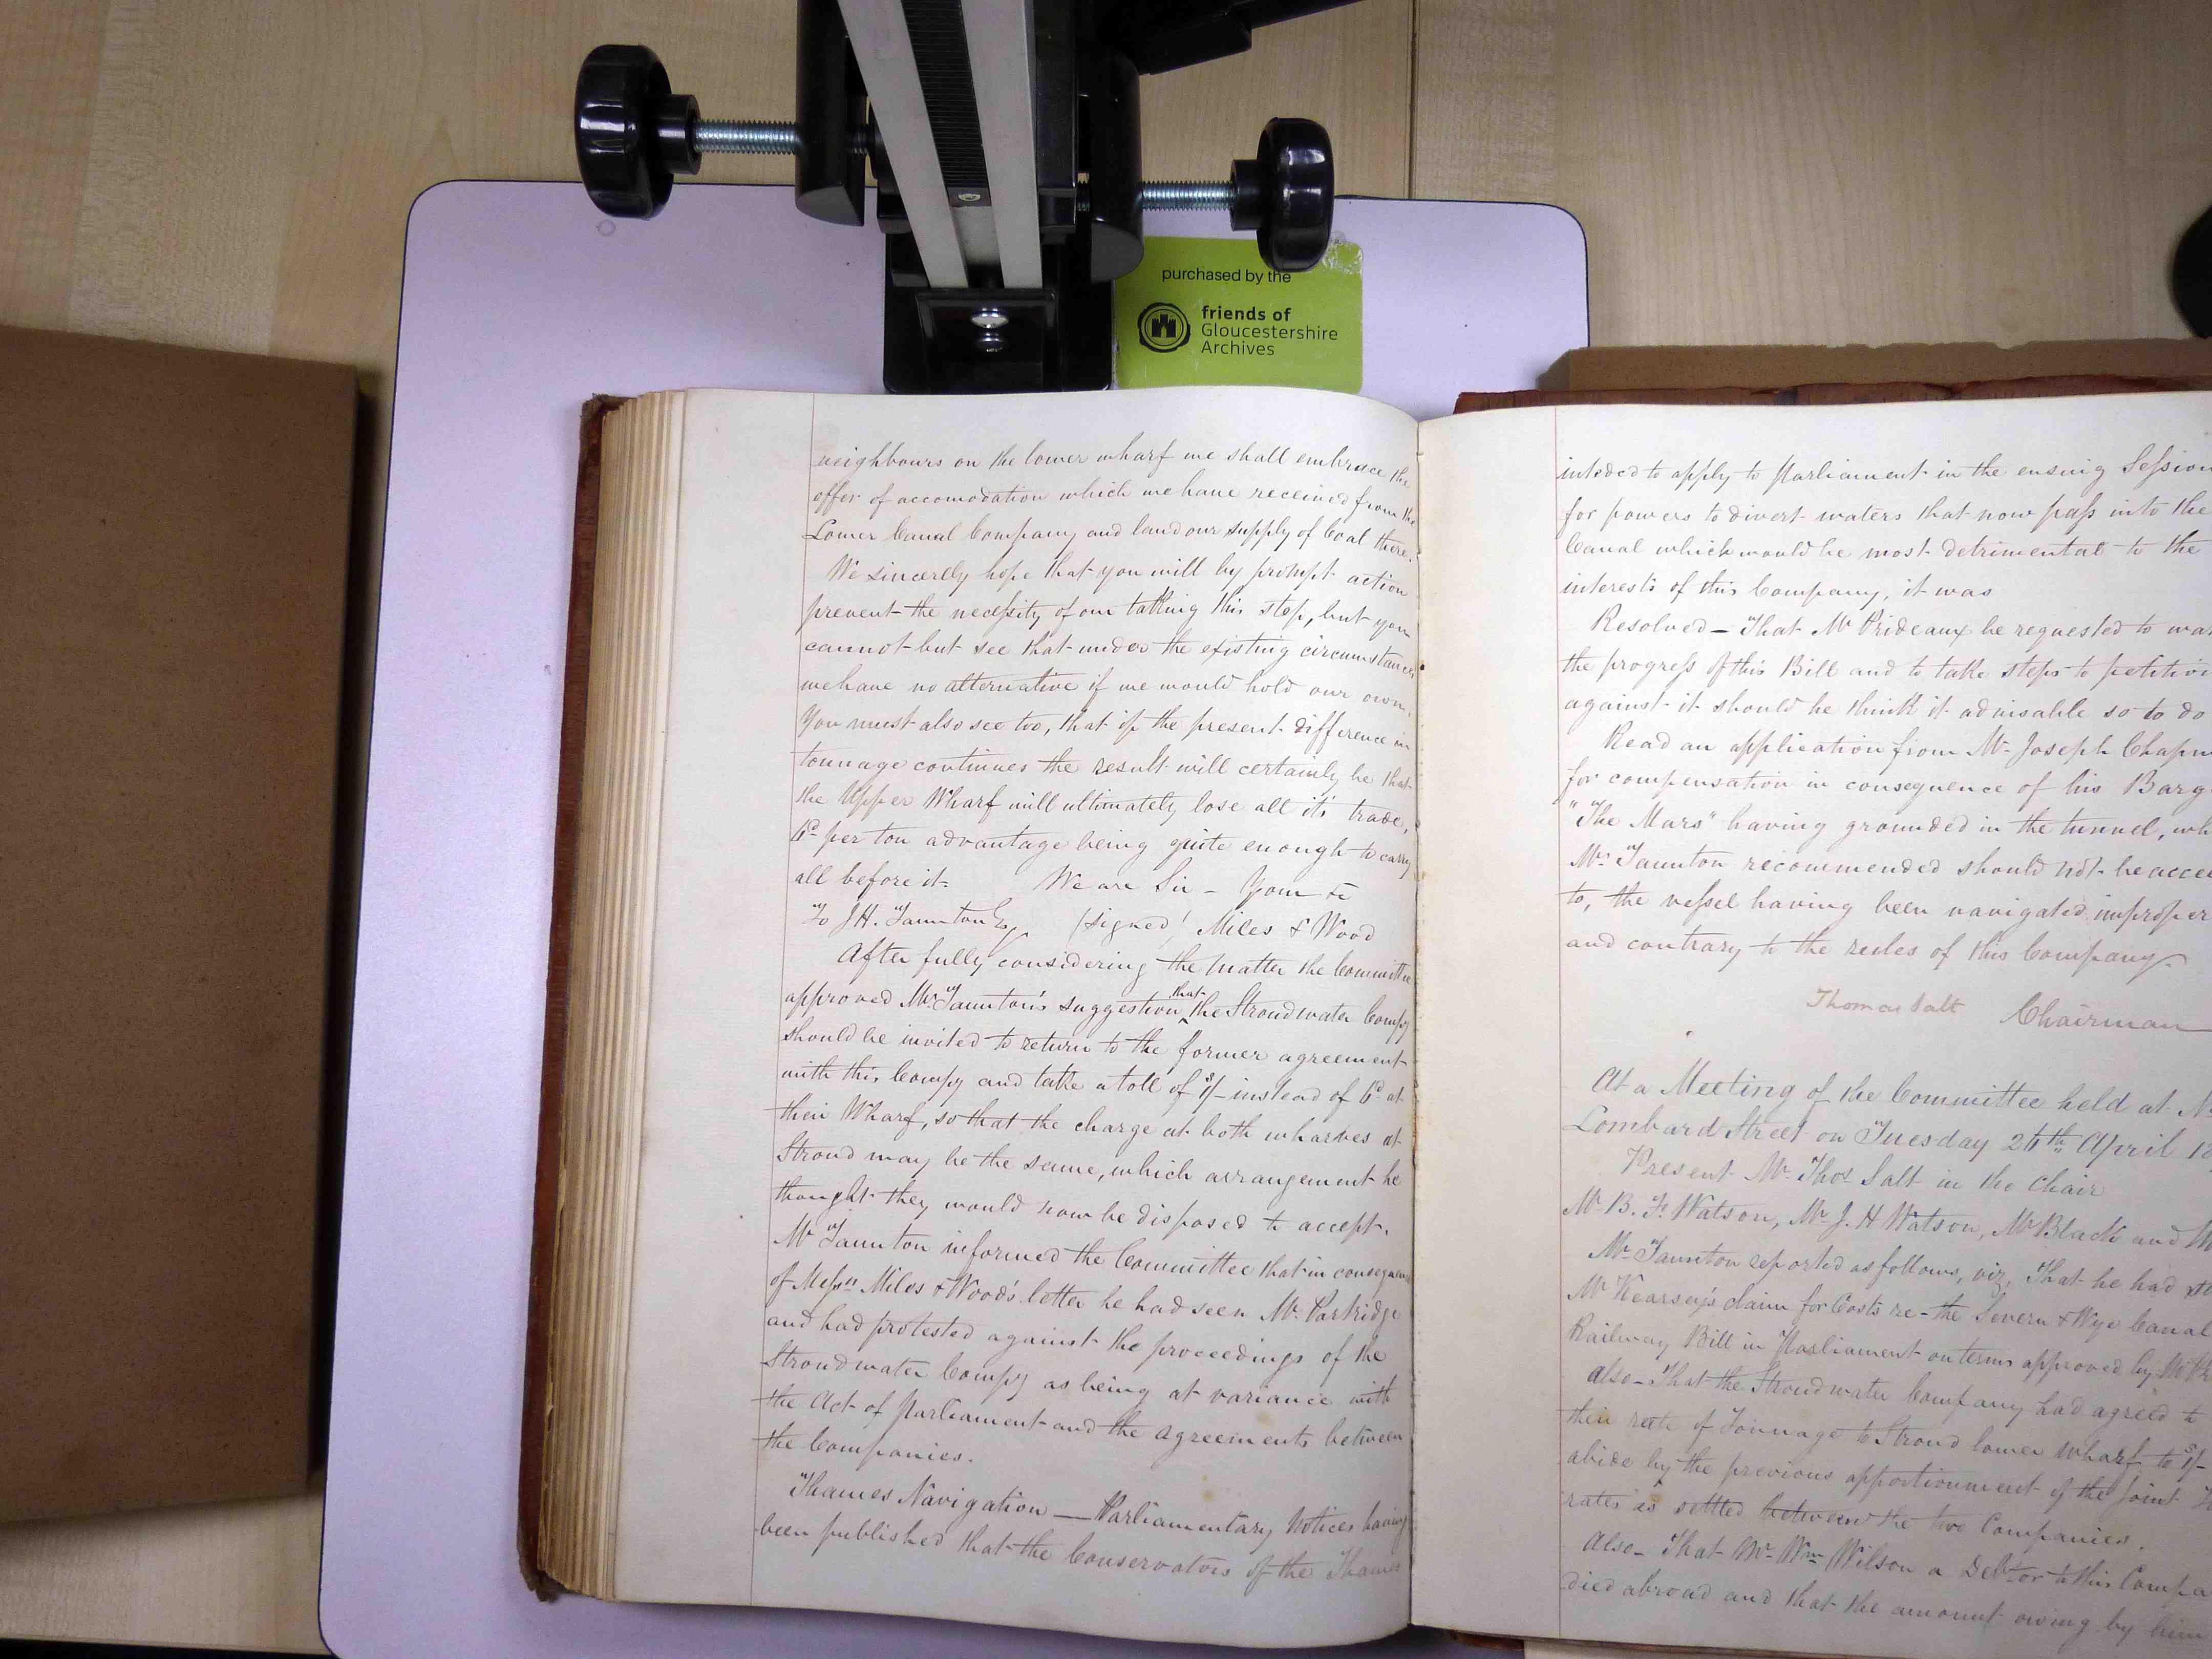 purchased by the
friends of
Gloucestershire
Archives
neighbours on the lower wharf we shall embrace the
offer of accomodation which we have received from the
Lower Canal Company and land our supply of Coal there.
We sincerely hope that you will by prompt action
prevent the necessity of our taking this step, but you
cannot but see that under the existing circumstances
we have no alternative if we would hold our own.
You must also see too, that if the present difference in
tonnage continues the result will certainly be that
the Upper Wharf will ultimately lose all it's trade,
6d per ton advantage being quite enough to carry
all before it. We are Sir – Your &c
To J. H. Taunton Esq (signed) Miles & Wood
After fully considering the matter the Committee
approved Mr Taunton's suggestion that the Stroudwater Compy
should be invited to return to the former agreement
with this Compy and take a toll of 1/- instead of 6d at
their Wharf, so that the charge at both wharves at
Stroud may be the same, which arrangement he
thought they would now be disposed to accept.
Mr Taunton informed the Committee that in consequence
of Messrs Miles & Wood's letter he had seen Mr Partridge
and had protested against the proceedings of the
Stroudwater Compy as being at variance with
the Act of Parliament and the agreements between
the Companies.
Thames Navigation — Parliamentary Notices having
been published that the Conservators of the Thames
inteded to apply to Parliament in the ensuing Session
for powers to divert waters that now pass into the
Canal which would be most detrimental to the
interests of this Company, it was
Resolved – That Mr Prideaux be requested to
the progress of this Bill and to take steps to petition
against it should he think it advisable so to do
Read an application from Mr Joseph
for compensation in consequence of his Barge
"The Mars" having grounded in the tunnel,
Mr Taunton recommended should not be
to, the vessel having been navigated
and contrary to the rules of this Company.
Thomas Salt Chairman
At a Meeting of the Committee held at
Lombard Street on Tuesday April
Present Mr Thos Salt in the Chair
Mr B. F. Watson, Mr J. H Watson, Mr Black and
Mr Taunton reported as follows, viz. That he had
Mr Kearsey's claim for Costs re – the Severn & Wye Canal
Railway Bill in Parliament on terms approved by
Also – That the Stroudwater Company had agreed to
their rate of Tonnage to Stroud lower wharf to 1/-
abide by the previous apportionment of the joint
rates as settled between the two Companies.
Also – That Mr Wm Wilson a Debtor to this
died abroad and that the amount owing by him